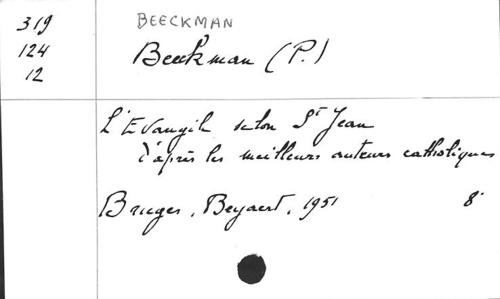 319
124
12
BEECKMAN
Beeckman (P.)
L'Evangile selon St Jean
d'après les meilleurs auteurs catholiques
Bruges, Beyaert, 1951 8°